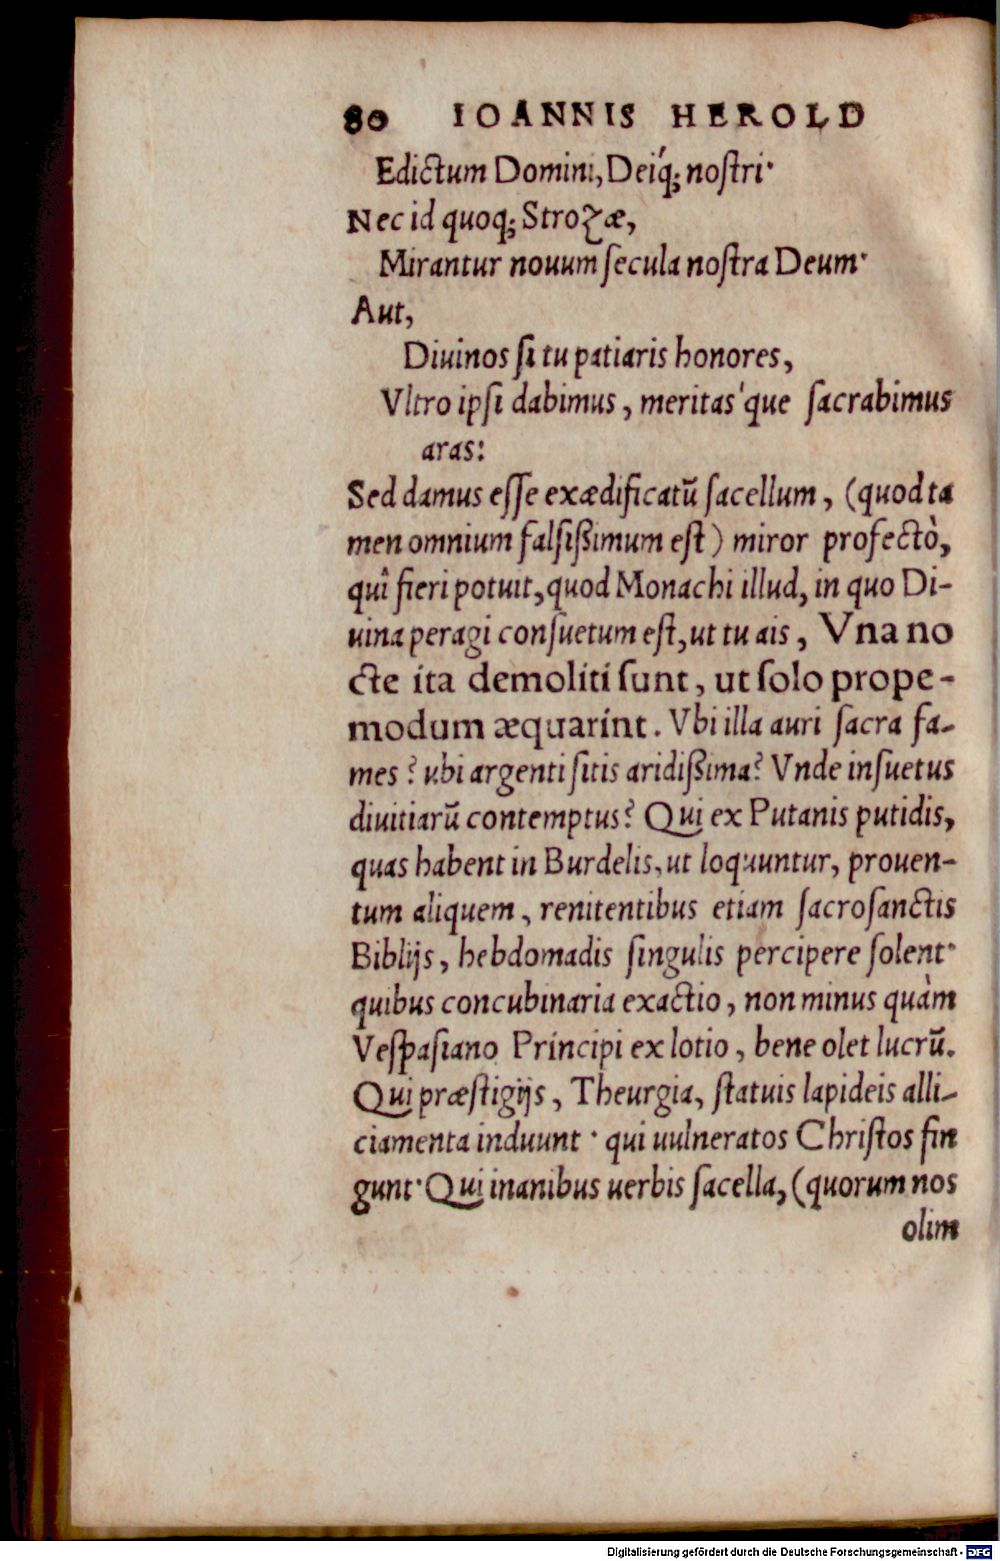 80 IOANNIS HEROLD
Edictum Domini, Deiq́; nostri·
Nec id quoq; Strozæ,
Mirantur nouum secula nostra Deum·
Aut,
Diuinos si tu patiaris honores,
Vltro ipsi dabimus, meritas'que sacrabimus
aras:
Sed damus esse exædificatū sacellum, (quod ta
men omnium falsißimum est) miror profectò,
quî fieri potuit, quod Monachi illud, in quo Di-
uina peragi consuetum est, ut tu ais, Vna no
cte ita demoliti sunt, ut solo prope-
modum æquarint. Vbi illa auri sacra fa-
mes? ubi argenti sitis aridißima? Vnde insuetus
diuitiarū contemptus? Qui ex Putanis putidis,
quas habent in Burdelis, ut loquuntur, prouen-
tum aliquem, renitentibus etiam sacrosanctis
Biblijs, hebdomadis singulis percipere solent·
quibus concubinaria exactio, non minus quàm
Vespasiano Principi ex lotio, bene olet lucrū.
Qui præstigijs, Theurgia, statuis lapideis alli-
ciamenta induunt· qui uulneratos Christos fin
gunt· Qui inanibus uerbis sacella, (quorum nos
olim
Digitalisierung gefördert durch die Deutsche Forschungsgemeinschaft - DFG